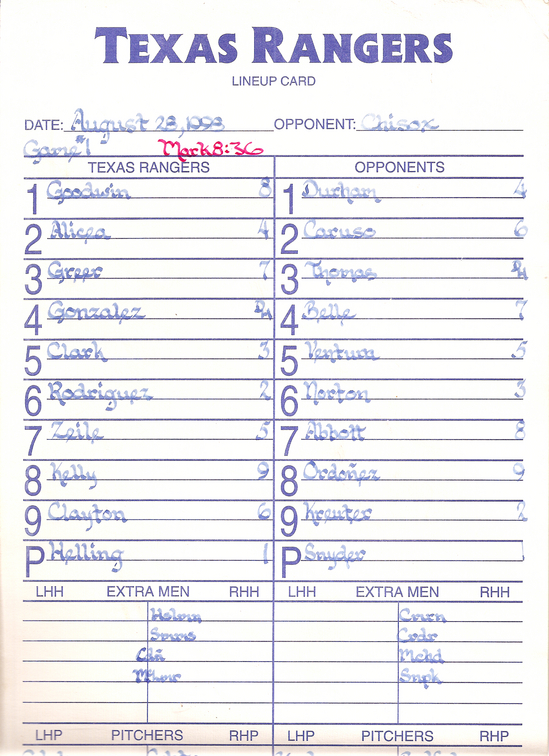 TEXAS RANGERS
LINEUP CARD
DATE: August 28, 1998 OPPONENT: Chisox
Game #1 Mark 8:36
TEXAS RANGERS OPPONENTS
1 Goodwin 8 1 Durham 4
2 Alicea 4 2 Caruso 6
3 Greer 7 3 Thomas DH
4 Gonzalez DH 4 Belle 7
5 Clark 3 5 Ventura 5
6 Rodriguez 2 6 Norton 3
7 Zeile 5 7 Abbott 8
8 Kelly 9 8 Ordoñez 9
9 Clayton 6 9 Kreuter 2
P Helling 1 P Snyder 1
LHH EXTRA MEN RHH LHH EXTRA MEN RHH
Simms Cdr
LHP PITCHERS RHP LHP PITCHERS RHP